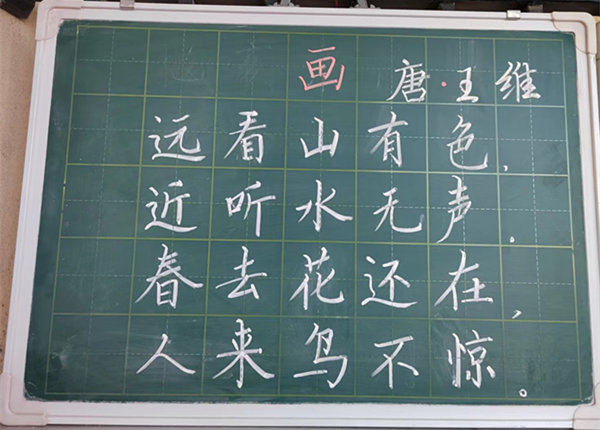 画 唐·王维
远看山有色,
近听水无声.
春去花还在,
人来鸟不惊。